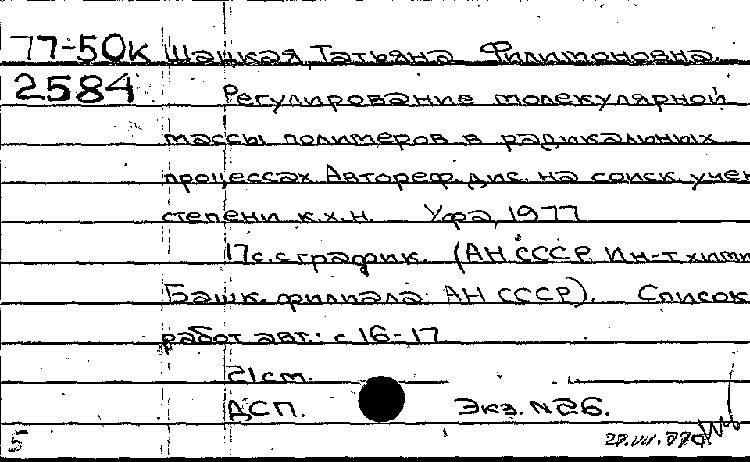 77-50к Шацкая, Татьяна Филимоновна.
2584 Регулирование молекулярной
массы полимеров в радикальных
процессах. Автореф. дис. на соиск. учен
степени к.х.н. Уфа, 1977
17с. с график. (АН СССР. Ин-т хими
Башк. филиала АН СССР). Список
работ авт.: с 16-17
21 см.
ДСП. Экз. N 26.